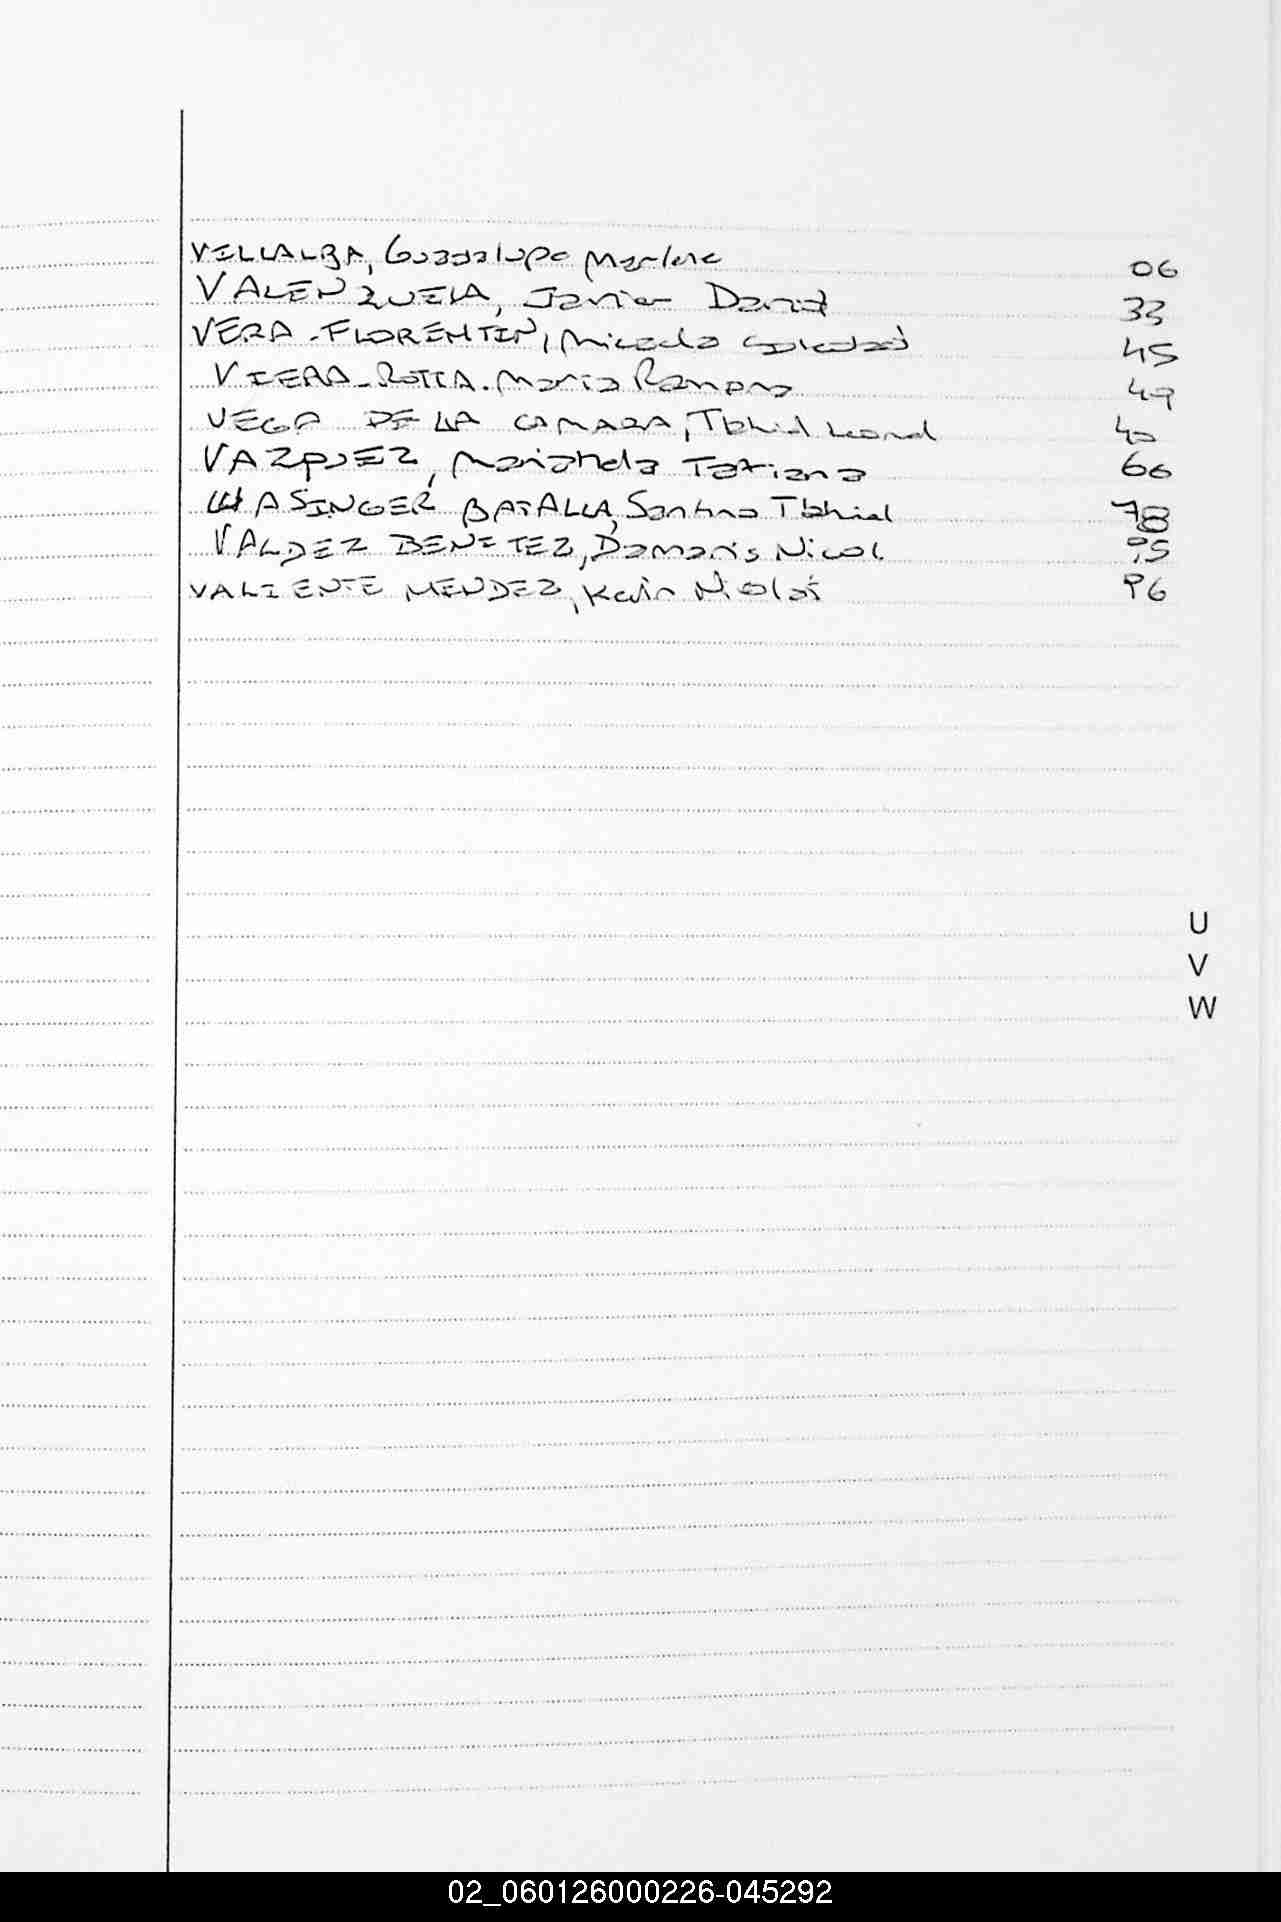 VILLALBA, Guadalupe Marlene 06
VALENZUELA, Javier David 33
VERA-FLORENTIN, Micaela Soledad 45
VIERA-ROTTA. Maria Ramona 49
VEGA DE LA CAMARA, Tahiel Leonel 40
VAZQUEZ, Marianela Tatiana 66
WASINGER BATALLA, Santino Tahiel 78
VALDEZ BENITEZ, Damaris Nicol 95
VALIENTE MENDEZ, Kevin Nicolás 96
U
V
W
02_060126000226-045292